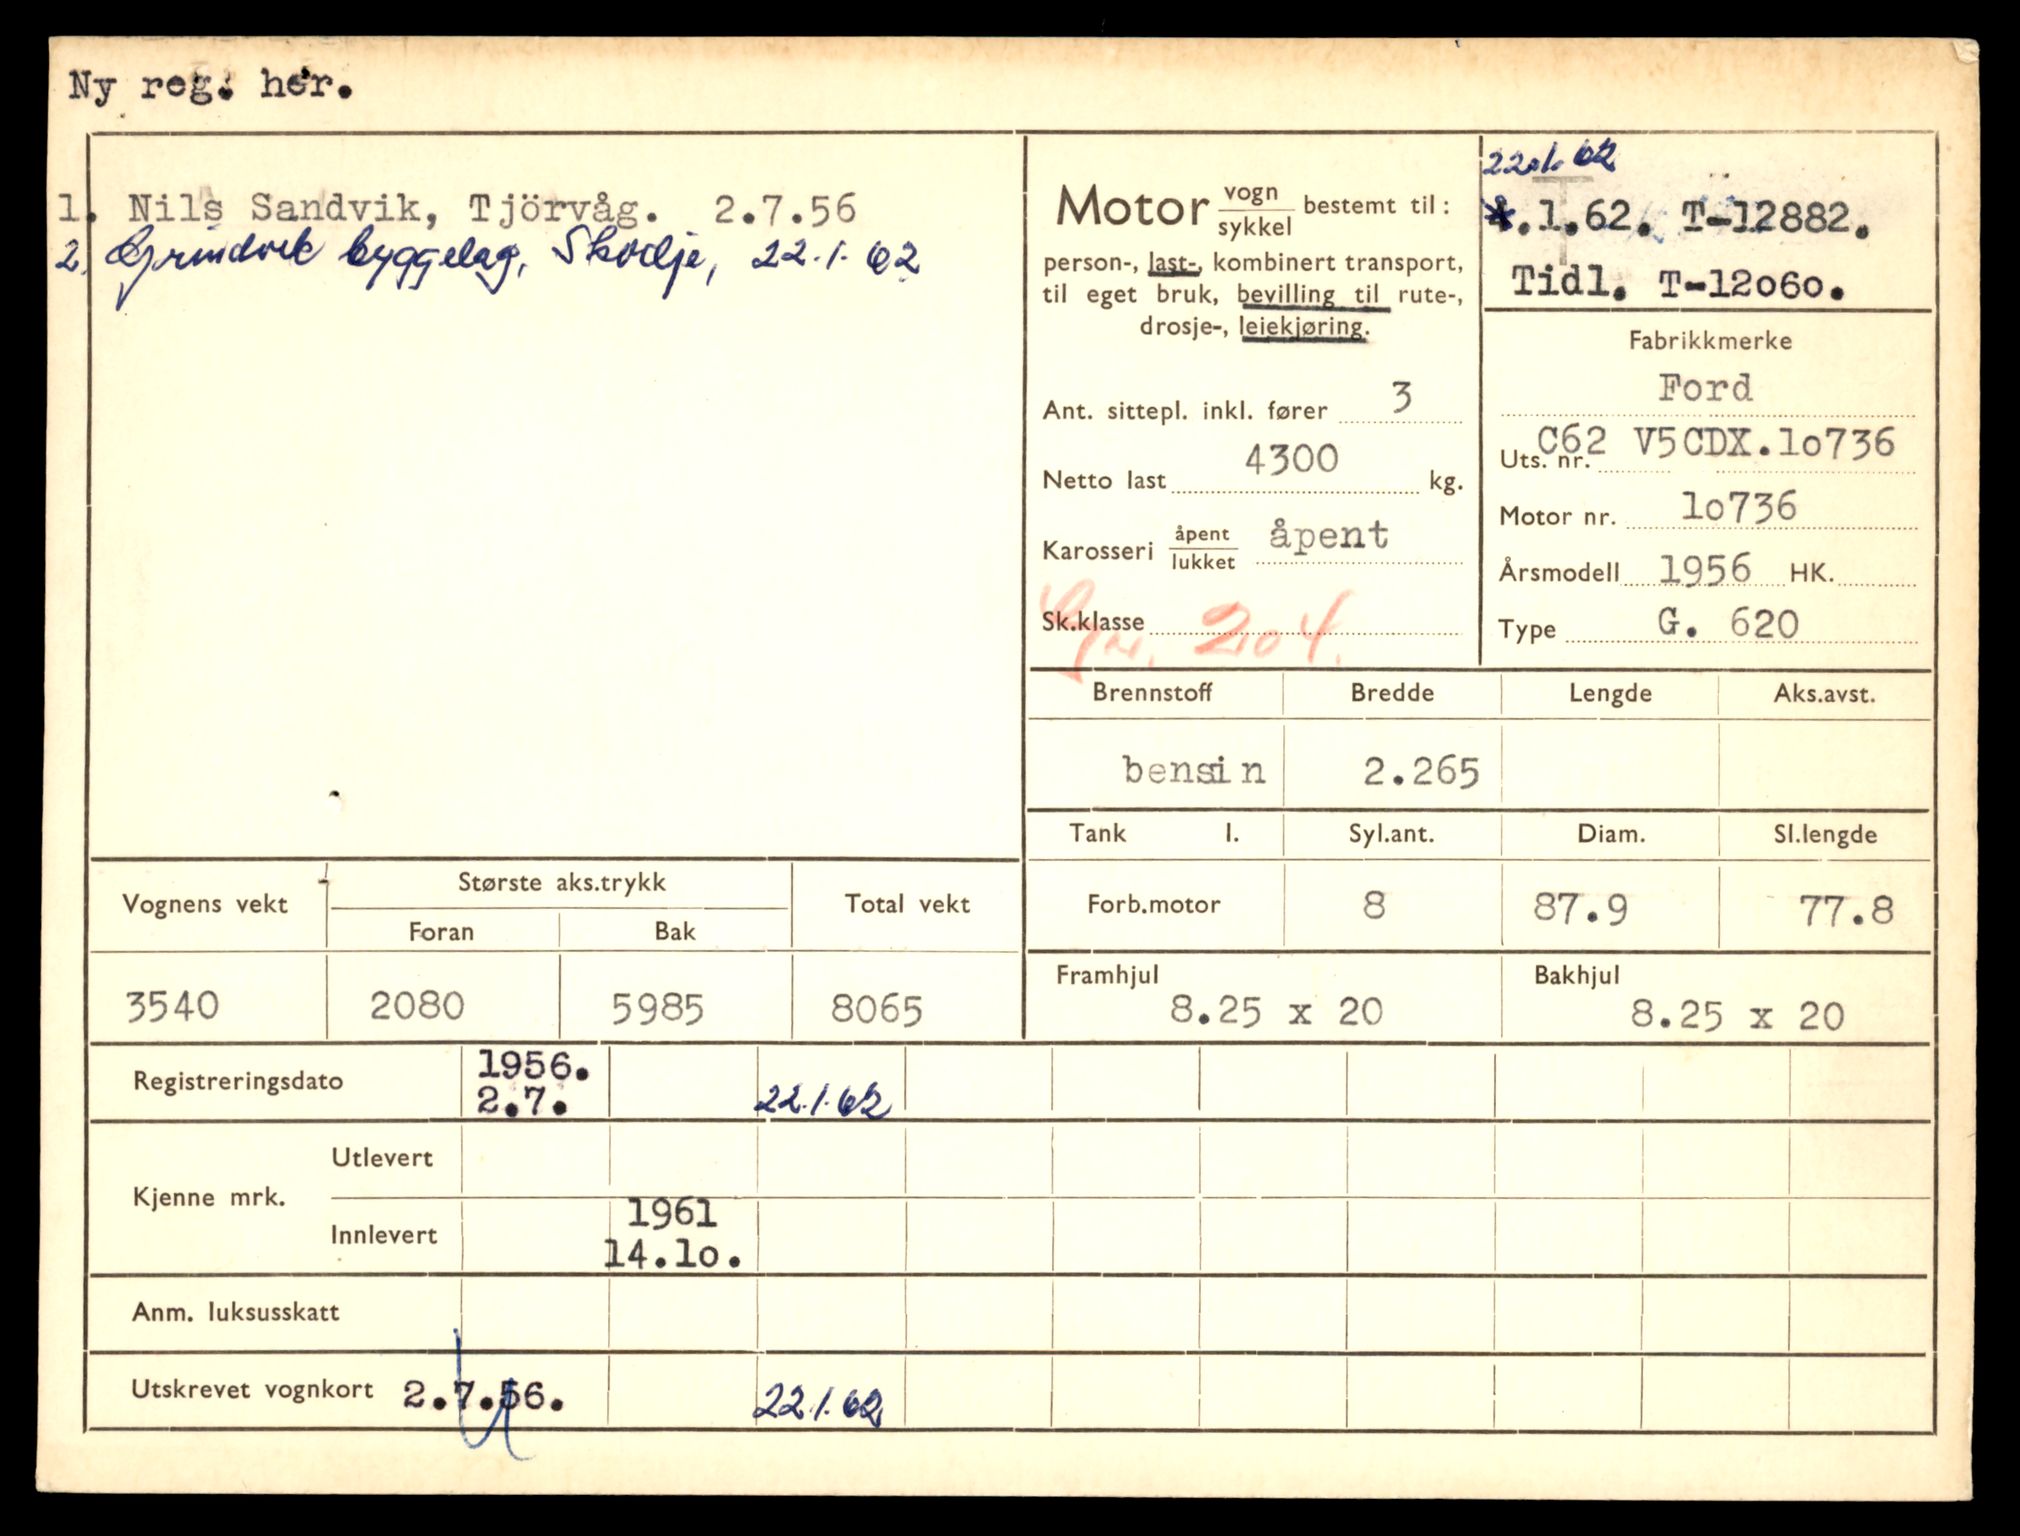 Ny reg. her.
1. Nils Sandvik, Tjörvåg. 2.7.56
2. Grindvik byggelag, Skodje, 22.1.62
Motor vogn/sykkel bestemt til:
person-, last-, kombinert transport,
til eget bruk, bevilling til rute-,
drosje-, leiekjøring.
Ant. sittepl. inkl. fører 3
Netto last 4300 kg.
Karosseri åpent/lukket åpent
Sk.klasse
Gr. 204.
22.1.62
.1.62. T-12882.
Tidl. T-12060.
Fabrikkmerke
Ford
Uts. nr. C62 V5CDX.10736
Motor nr. 10736
Årsmodell 1956 HK.
Type G. 620
Brennstoff Bredde Lengde Aks.avst.
bensin 2.265
Tank l. Syl.ant. Diam. Sl.lengde
Forb.motor 8 87.9 77.8
Framhjul Bakhjul
8.25 x 20 8.25 x 20
Vognens vekt Største aks.trykk Total vekt
Foran Bak
3540 2080 5985 8065
Registreringsdato 1956. 2.7. 22.1.62
Kjenne mrk. Utlevert
Innlevert 1961 14.10.
Anm. luksusskatt
Utskrevet vognkort 2.7.56. 22.1.62